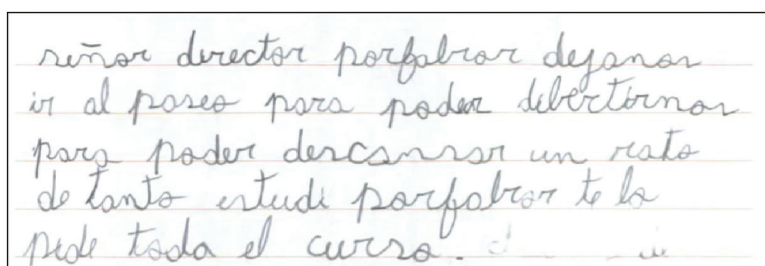 señor director porfabror dejanos
ir al paseo para poder dibertirnos
para poder descansar un rato
de tanto estudi porfabror te lo
pide todo el curso.